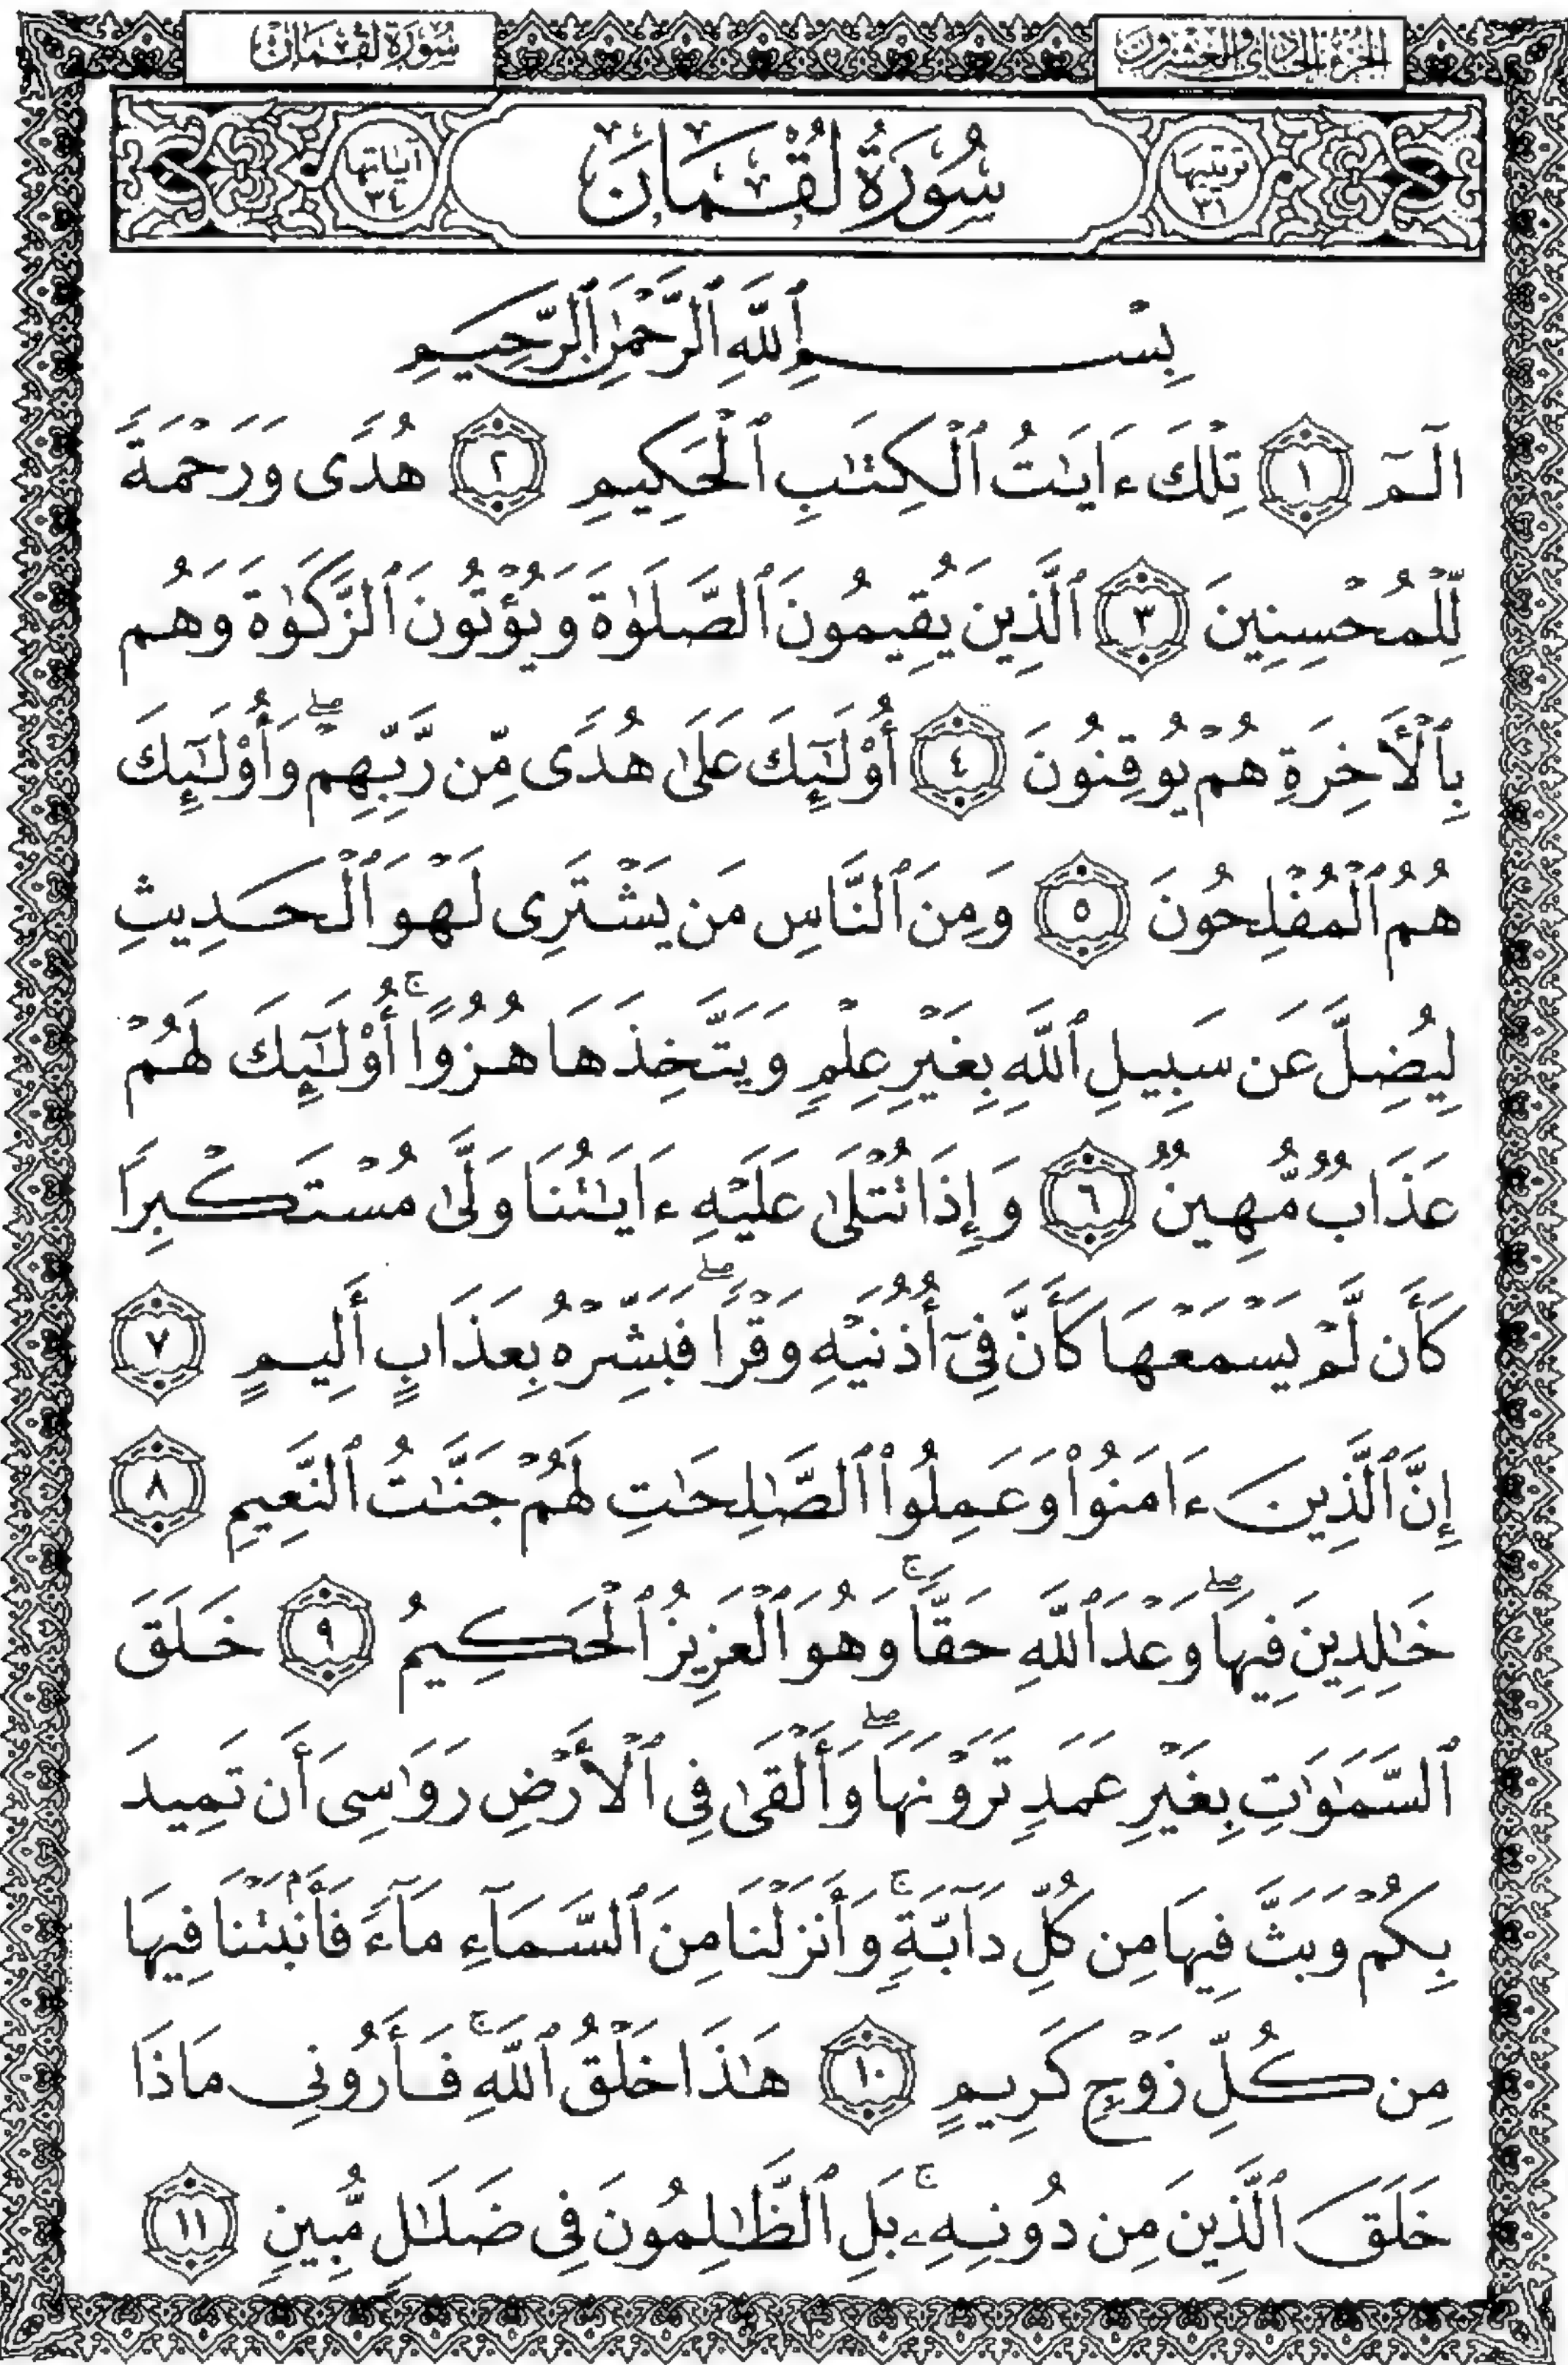 الجزء الحادي والعشرون
سورة لقمان
ترتيبها ٣١
سُورَةُ لُقْمَانَ
آياتها ٣٤
بِسْمِ ٱللَّهِ ٱلرَّحْمَٰنِ ٱلرَّحِيمِ
الٓمٓ ١ تِلْكَ ءَايَٰتُ ٱلْكِتَٰبِ ٱلْحَكِيمِ ٢ هُدًى وَرَحْمَةً
لِّلْمُحْسِنِينَ ٣ ٱلَّذِينَ يُقِيمُونَ ٱلصَّلَوٰةَ وَيُؤْتُونَ ٱلزَّكَوٰةَ وَهُم
بِٱلْأَخِرَةِ هُمْ يُوقِنُونَ ٤ أُو۟لَٰٓئِكَ عَلَىٰ هُدًى مِّن رَّبِّهِمْ ۖ وَأُو۟لَٰٓئِكَ
هُمُ ٱلْمُفْلِحُونَ ٥ وَمِنَ ٱلنَّاسِ مَن يَشْتَرِى لَهْوَ ٱلْحَدِيثِ
لِيُضِلَّ عَن سَبِيلِ ٱللَّهِ بِغَيْرِ عِلْمٍ وَيَتَّخِذَهَا هُزُوًا ۚ أُو۟لَٰٓئِكَ لَهُمْ
عَذَابٌ مُّهِينٌ ٦ وَإِذَا تُتْلَىٰ عَلَيْهِ ءَايَٰتُنَا وَلَّىٰ مُسْتَكْبِرًا
كَأَن لَّمْ يَسْمَعْهَا كَأَنَّ فِىٓ أُذُنَيْهِ وَقْرًا ۖ فَبَشِّرْهُ بِعَذَابٍ أَلِيمٍ ٧
إِنَّ ٱلَّذِينَ ءَامَنُوا۟ وَعَمِلُوا۟ ٱلصَّٰلِحَٰتِ لَهُمْ جَنَّٰتُ ٱلنَّعِيمِ ٨
خَٰلِدِينَ فِيهَا ۖ وَعْدَ ٱللَّهِ حَقًّا ۚ وَهُوَ ٱلْعَزِيزُ ٱلْحَكِيمُ ٩ خَلَقَ
ٱلسَّمَٰوَٰتِ بِغَيْرِ عَمَدٍ تَرَوْنَهَا ۖ وَأَلْقَىٰ فِى ٱلْأَرْضِ رَوَٰسِىَ أَن تَمِيدَ
بِكُمْ وَبَثَّ فِيهَا مِن كُلِّ دَآبَّةٍ ۚ وَأَنزَلْنَا مِنَ ٱلسَّمَآءِ مَآءً فَأَنۢبَتْنَا فِيهَا
مِن كُلِّ زَوْجٍ كَرِيمٍ ١٠ هَٰذَا خَلْقُ ٱللَّهِ ۚ فَأَرُونِى مَاذَا
خَلَقَ ٱلَّذِينَ مِن دُونِهِۦ ۚ بَلِ ٱلظَّٰلِمُونَ فِى ضَلَٰلٍ مُّبِينٍ ١١